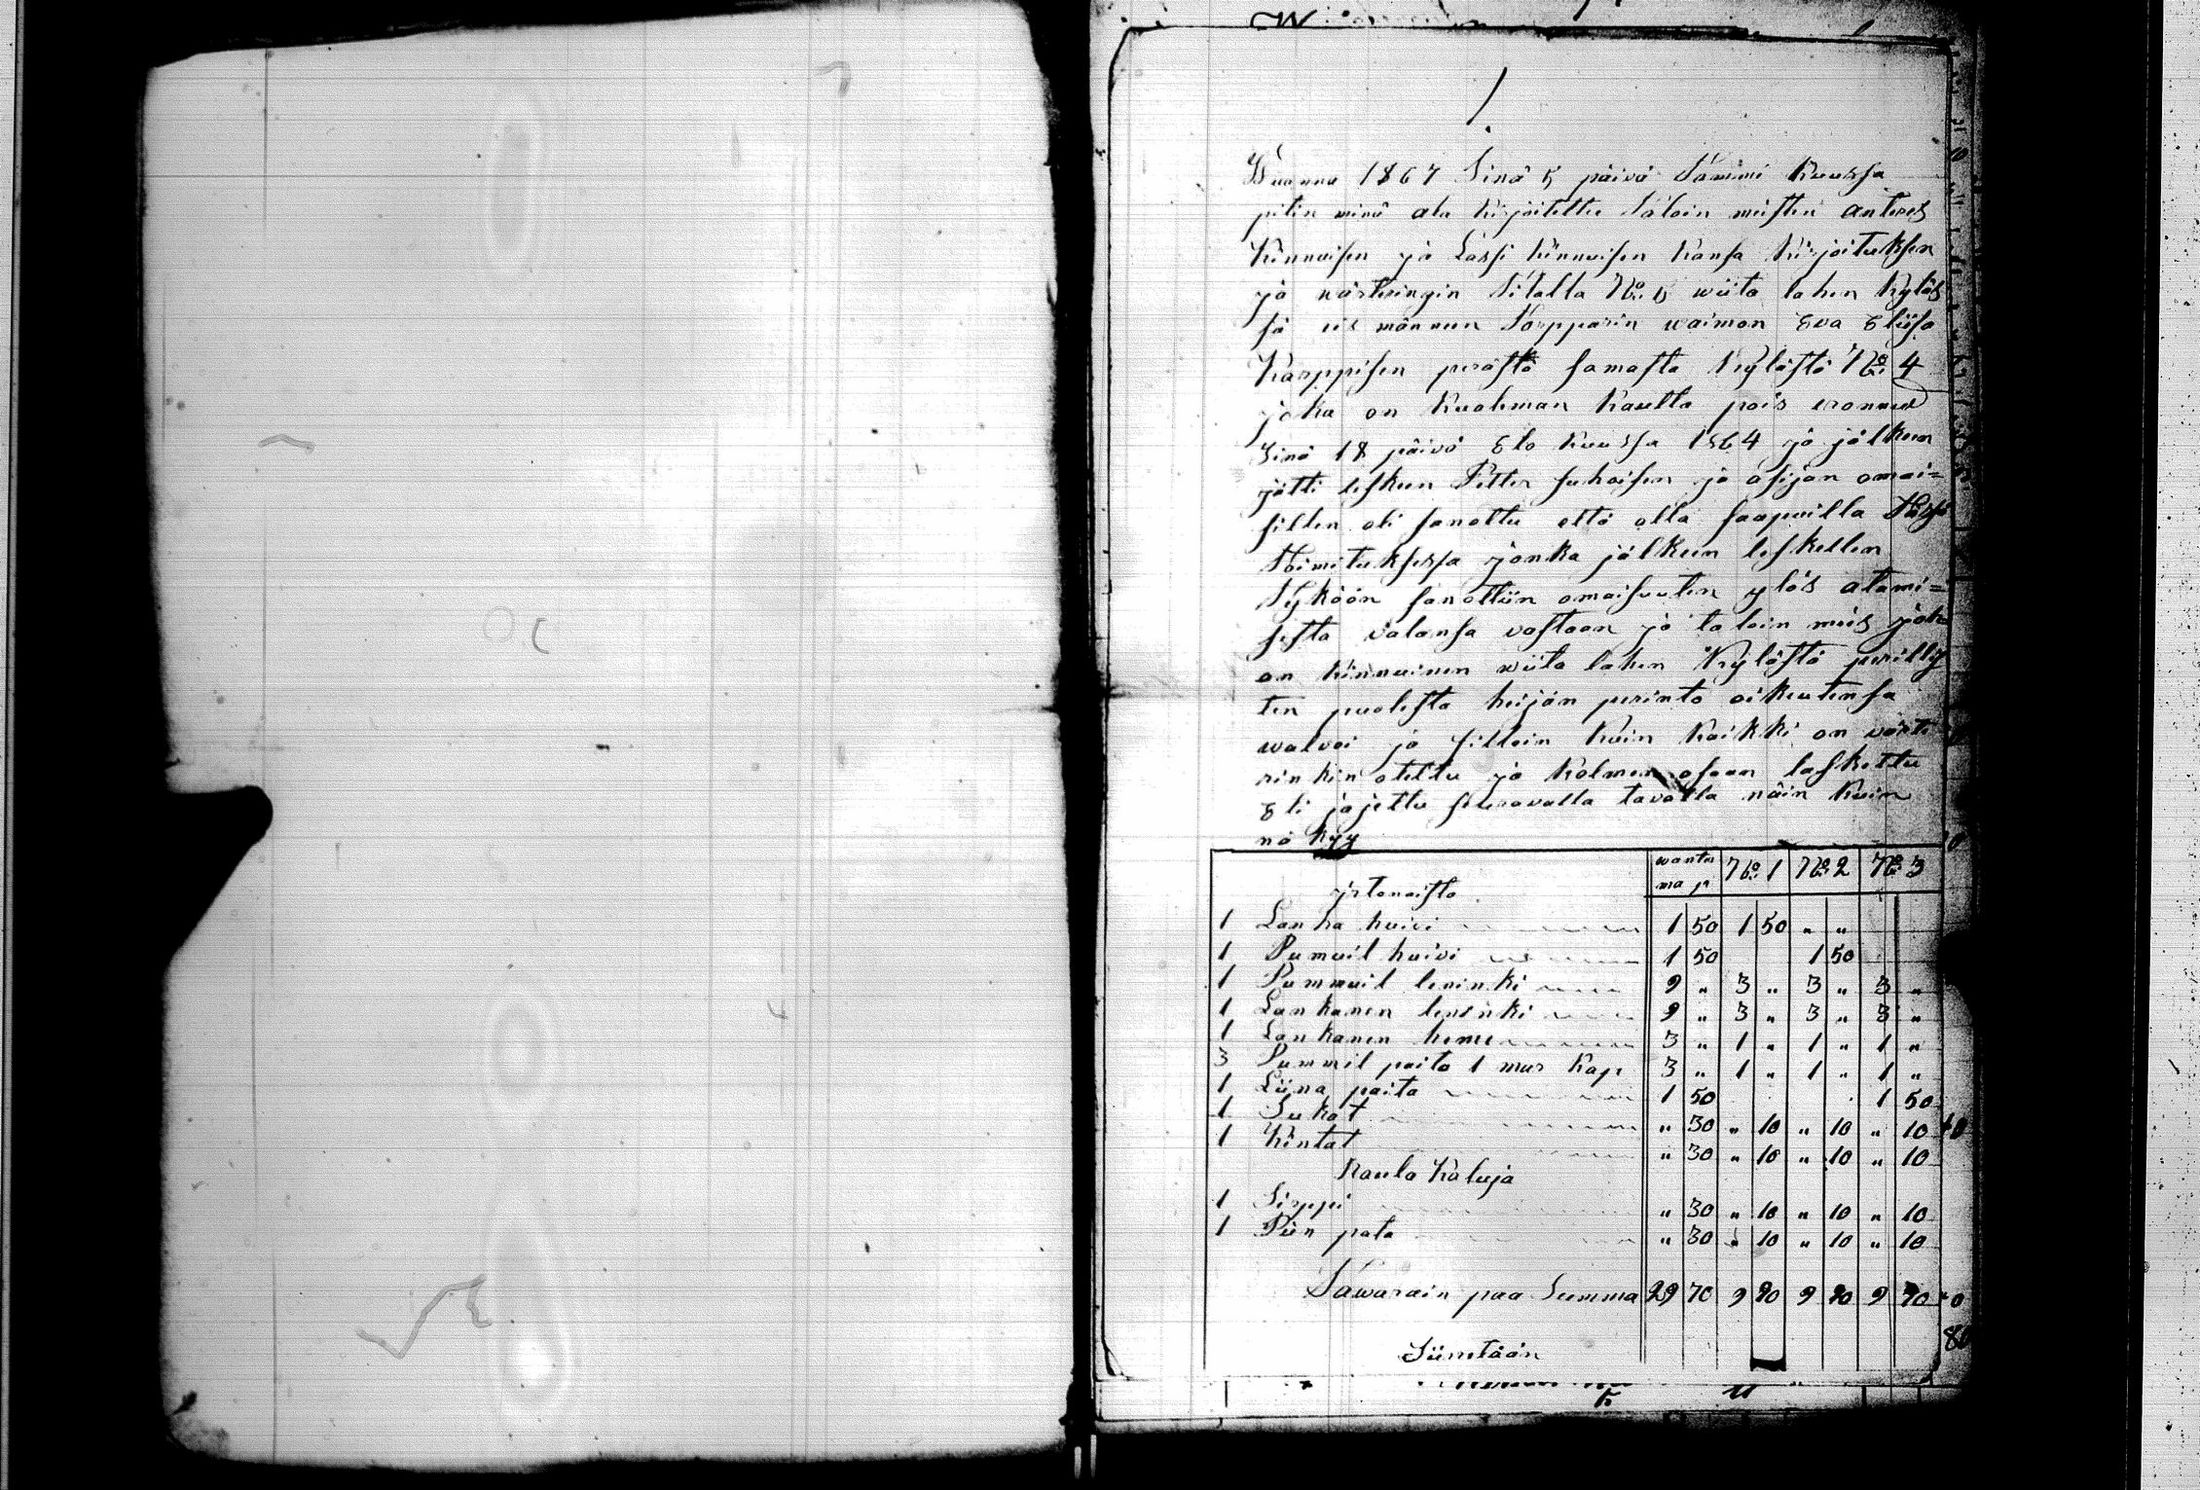 1
Wuonna 1867 Sinä 5 päivä Tammi Kuussa
pitin minä ala kirjoitettu Taloin miisten anteres
Kinnuisen ja Lassi Kinnuisen Kansa Kirjoituksen
ja wärteringin Tilalla No 5 wiita lahen Kyläs
sä uis männeen Torpparin waimon Eva Eliisa
Karppisen perästä samasta Kylästä No 4
joka on Kuoleman Kautta pois eronnut
Sinä 18 päivä Elo Kuussa 1864 ja jälkeen
jätti lesken Petter suhoisen ja asijan omai=
sillen oli sanottu että olla saapuilla Tässä
Toimituksessa jonka jälkeen leskellen
Tyköön sanottiin omaisuuten ylös antami=
sesta valansa vastaan ja taloin miis joh
an Kinnuinen wiita lahen Kylästä perilly
ten puolesta heijän perintö oikeutensa
walvoi ja silloin Kuin Kaikki on wärte
rinkin otettu ja Kolmen osaan laskettu
Eli jajettu seuraavalla tavalla näin Kuin
nä kyy
wantu ma p No 1 No 2 No 3
irtonaista
1 Lanka huivi 1 50 1 50 " "
1 Pumuil huivi 1 50 1 50
1 Pummuil leninki 9 " 3 " 3 " 3 "
1 Lankanen leninki 9 " 3 " 3 " 3 "
1 Lankanen heme 3 " 1 " 1 " 1 "
3 Pummil paita 1 mur Kap 3 " 1 " 1 " 1 "
1 Liina paita 1 50 1 50
1 Sukat " 30 " 10 " 10 " 10
1 Kintat " 30 " 10 " 10 " 10
Raula Kaluja
1 Sirppi " 30 " 10 " 10 " 10
1 Piin pata " 30 " 10 " 10 " 10
Tawarain paa Summa 29 70 9 90 9 90 9 90
Siiretään